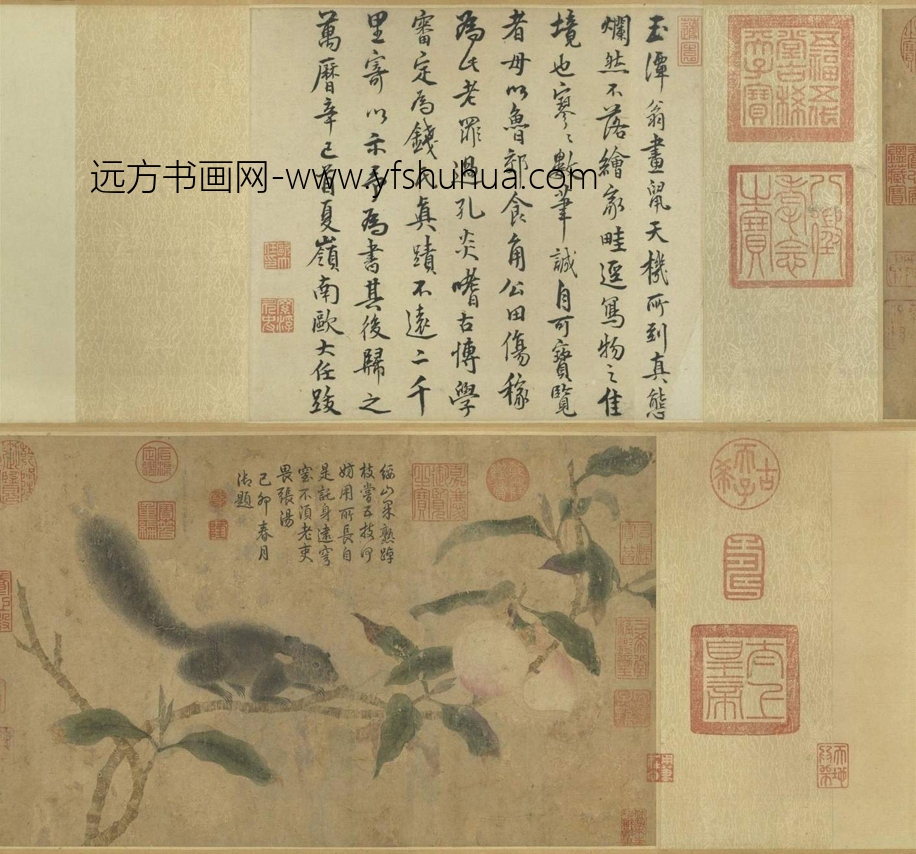 玉潭翁畫鼠天機所到真態
爛然不落繪家畦逕寫物之佳
境也寥寥數筆誠自可寶覽
者毋以魯郊食角公田傷稼
為此老罪過孔炎嗜古博學
審定為錢真蹟不遠二千
里寄以示為書其後歸之
萬曆辛巳首夏嶺南歐大任跋
五福五代堂古稀天子寶
八徵耄念之寶
远方书画网-www.yfshuhua.com
綏山果熟踔
枝嘗五技何
妨用所長自
是託身遠穹
窒不須老吏
畏張湯
己卯春月
御題
嘉慶御覽之寶
古稀天子
太上皇帝